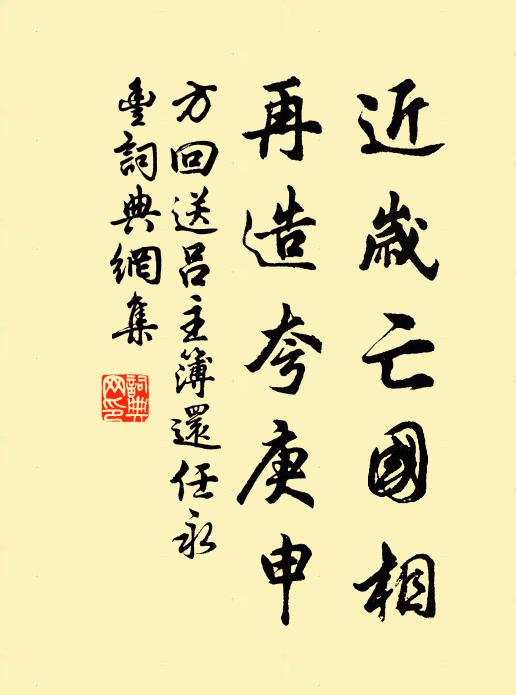 近歲亡國相
再造夸庚申
方回送呂主簿還任永
豐詞典網集
詞典
网印